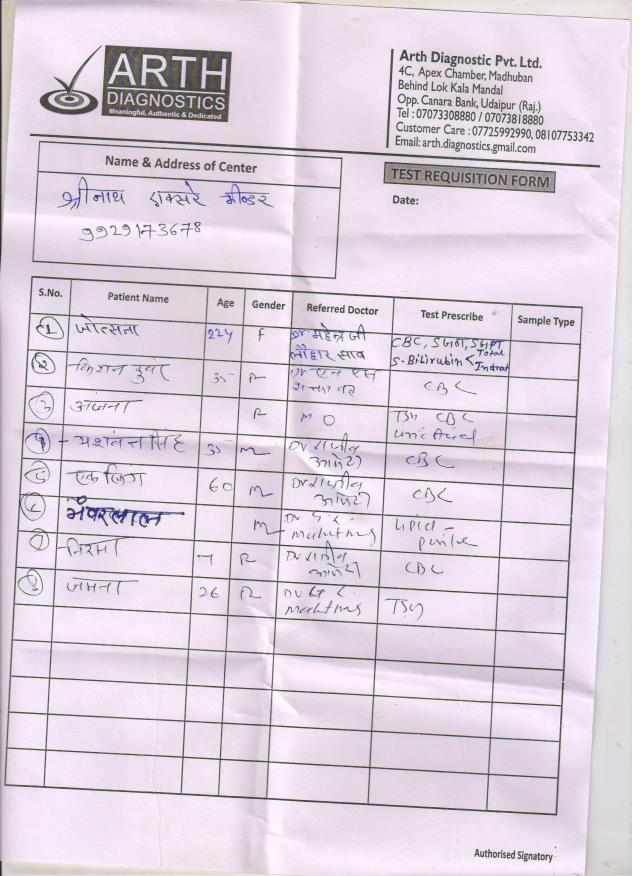 ARTH
DIAGNOSTICS
Meaningful, Authentic & Dedicated
Arth Diagnostic Pvt. Ltd.
4C, Apex Chamber, Madhuban
Behind Lok Kala Mandal
Opp. Canara Bank, Udaipur (Raj.)
Tel : 07073308880 / 07073818880
Customer Care : 07725992990, 08107753342
Email: arth.diagnostics.gmail.com
Name & Address of Center
TEST REQUISITION FORM
श्रीनाथ एक्सरे भीन्डर
Date:
9929173678
S.No. Patient Name Age Gender Referred Doctor Test Prescribe Sample Type
1 जोत्सना 22y F Dr महेन्द्र जी CBC, SGOT, SGPT
लौहार साब S. Bilirubin < Total
2 किशन कुवर 35 CBC
3 अंजना TSH CBC
4 यशवंत सिंह 35 M Dr राजीव CBC
आमेटा
5 एकलिंग 60 M Dr राजीव CBC
आमेटा
6 भंवरलाल M Dr Lipid
7 निरमा 7 Dr राजीव CBC
आमेटा
8 जमना 26 Dr TSH
Authorised Signatory